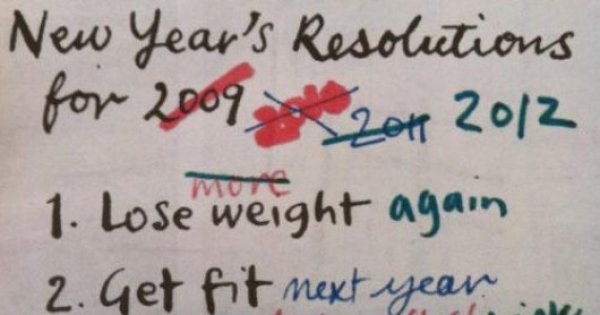 New Year's Resolutions
for 2009 2011 2012
more
1. Lose weight again
2. Get fit next year